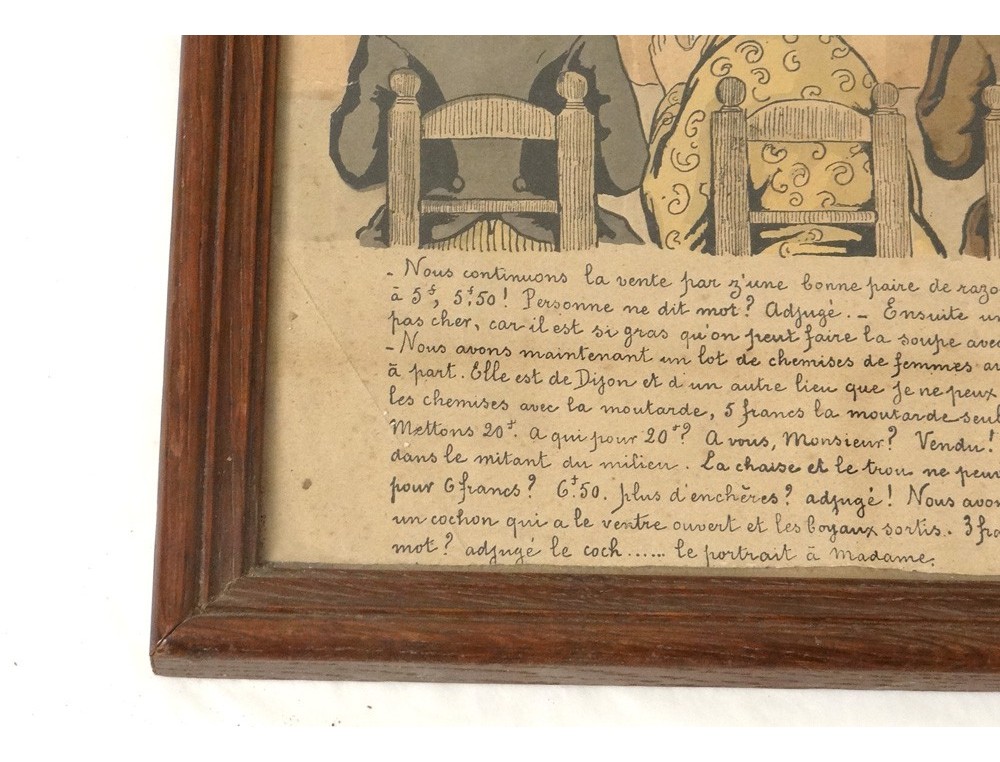 - Nous continuons la vente par z'une bonne paire de razo
à 5f, 5f.50! Personne ne dit mot? Adjugé. - Ensuite un
pas cher, car il est si gras qu'on peut faire la soupe avec
- Nous avons maintenant un lot de chemises de femmes au
à part. Elle est de Dijon et d'un autre lieu que je ne peux
les chemises avec la moutarde, 5 francs la moutarde seul
Mettons 20f. A qui pour 20f? A vous, Monsieur? Vendu!
dans le mitant du milieu. La chaise et le trou ne peuv
pour 6 francs? 6f.50. plus d'enchères? adjugé! Nous avon
un cochon qui a le ventre ouvert et les boyaux sortis. 3 fra
mot? adjugé le coch...... le portrait à Madame.